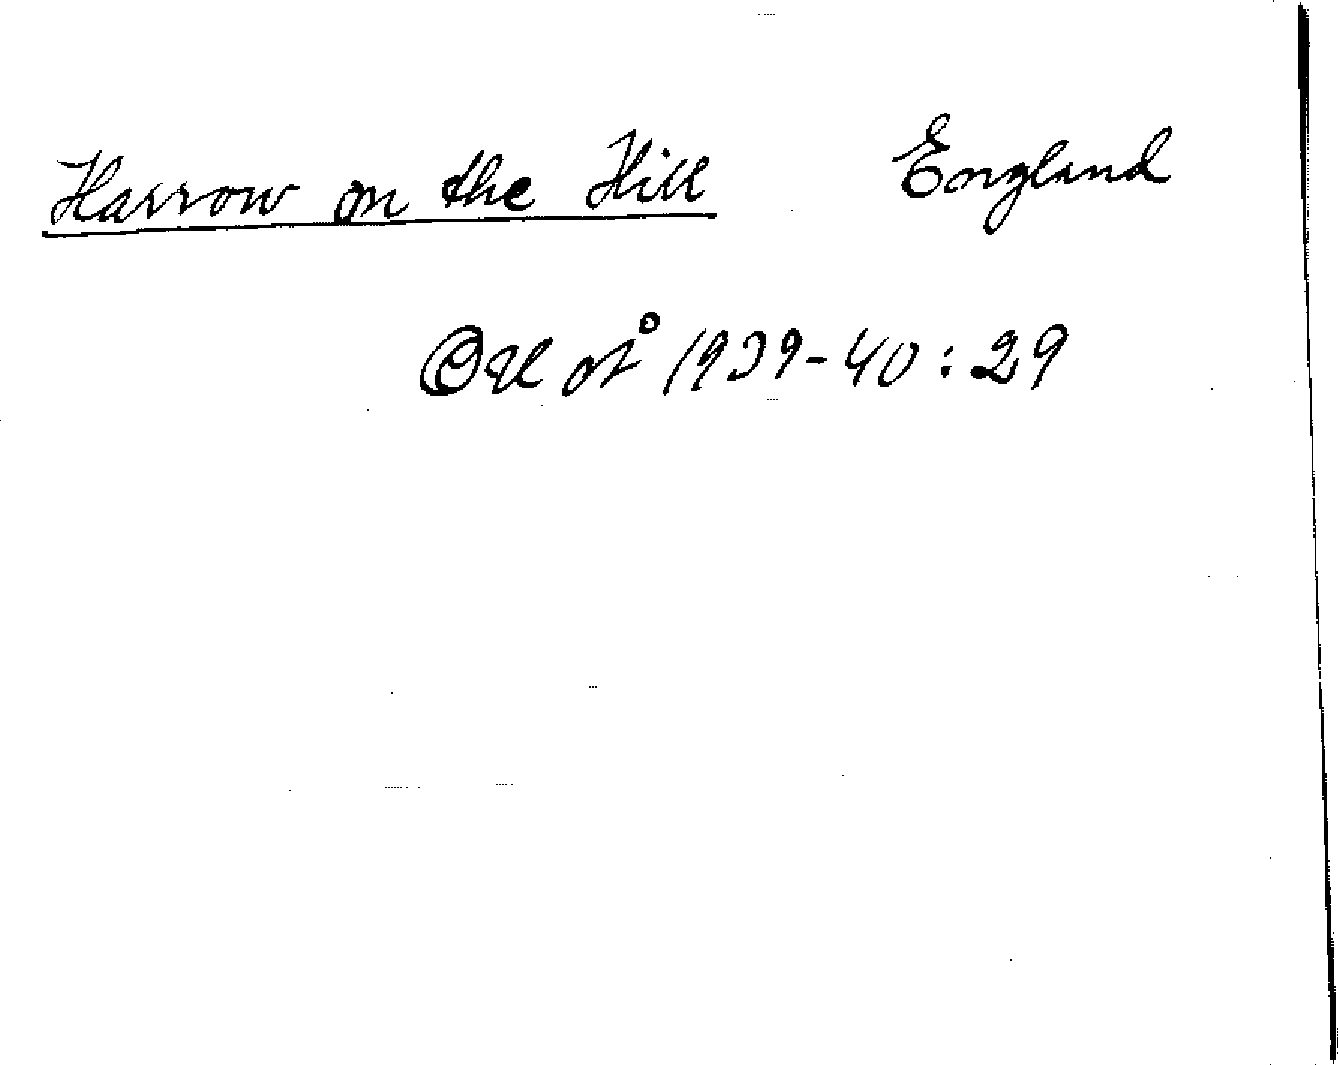 Harrow on the Hill England
1939-40:29